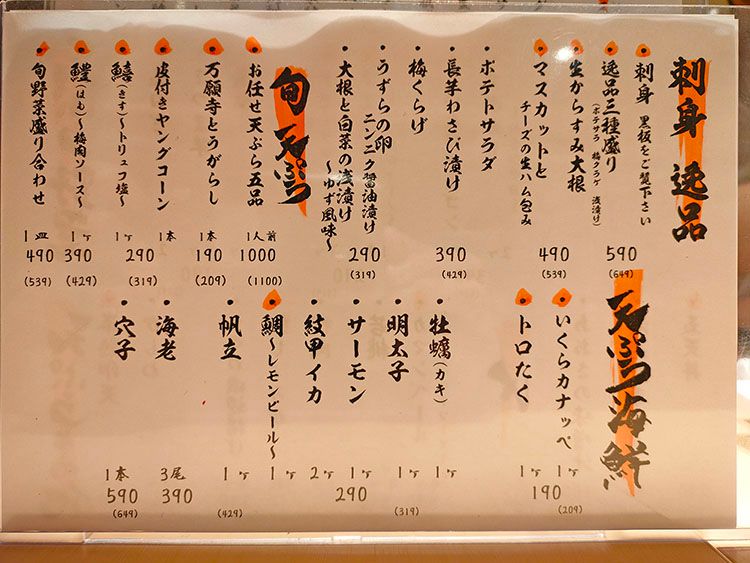 刺身 逸品
・刺身 黒板をご覧下さい
・逸品三種盛り
(ポテサラ 梅クラゲ 浅漬け)
590
(649)
・生からすみ大根
・マスカットと
チーズの生ハム包み
490
(539)
・ポテトサラダ
・長芋わさび漬け
390
(429)
・梅くらげ
・うずらの卵
ニンニク醤油漬け
290
(319)
・大根と白菜の浅漬け
〜ゆず風味〜
旬 天ぷら
・お任せ天ぷら五品
1人前
1000
(1100)
・万願寺とうがらし
1本
190
(209)
・皮付きヤングコーン
1本
290
(319)
・鱚(きす)〜トリュフ塩〜
1ヶ
・鱧(はも)〜梅肉ソース〜
1ヶ
390
(429)
・旬野菜盛り合わせ
1皿
490
(539)
天ぷら 海鮮
・いくらカナッペ
1ヶ
・トロたく
1ヶ
190
(209)
・牡蠣(カキ)
1ヶ
・明太子
1ヶ
・サーモン
1ヶ
・紋甲イカ
2ヶ
290
(319)
・鯛〜レモンピール〜
1ヶ
・帆立
1ヶ
・海老
3尾
390
(429)
・穴子
1本
590
(649)